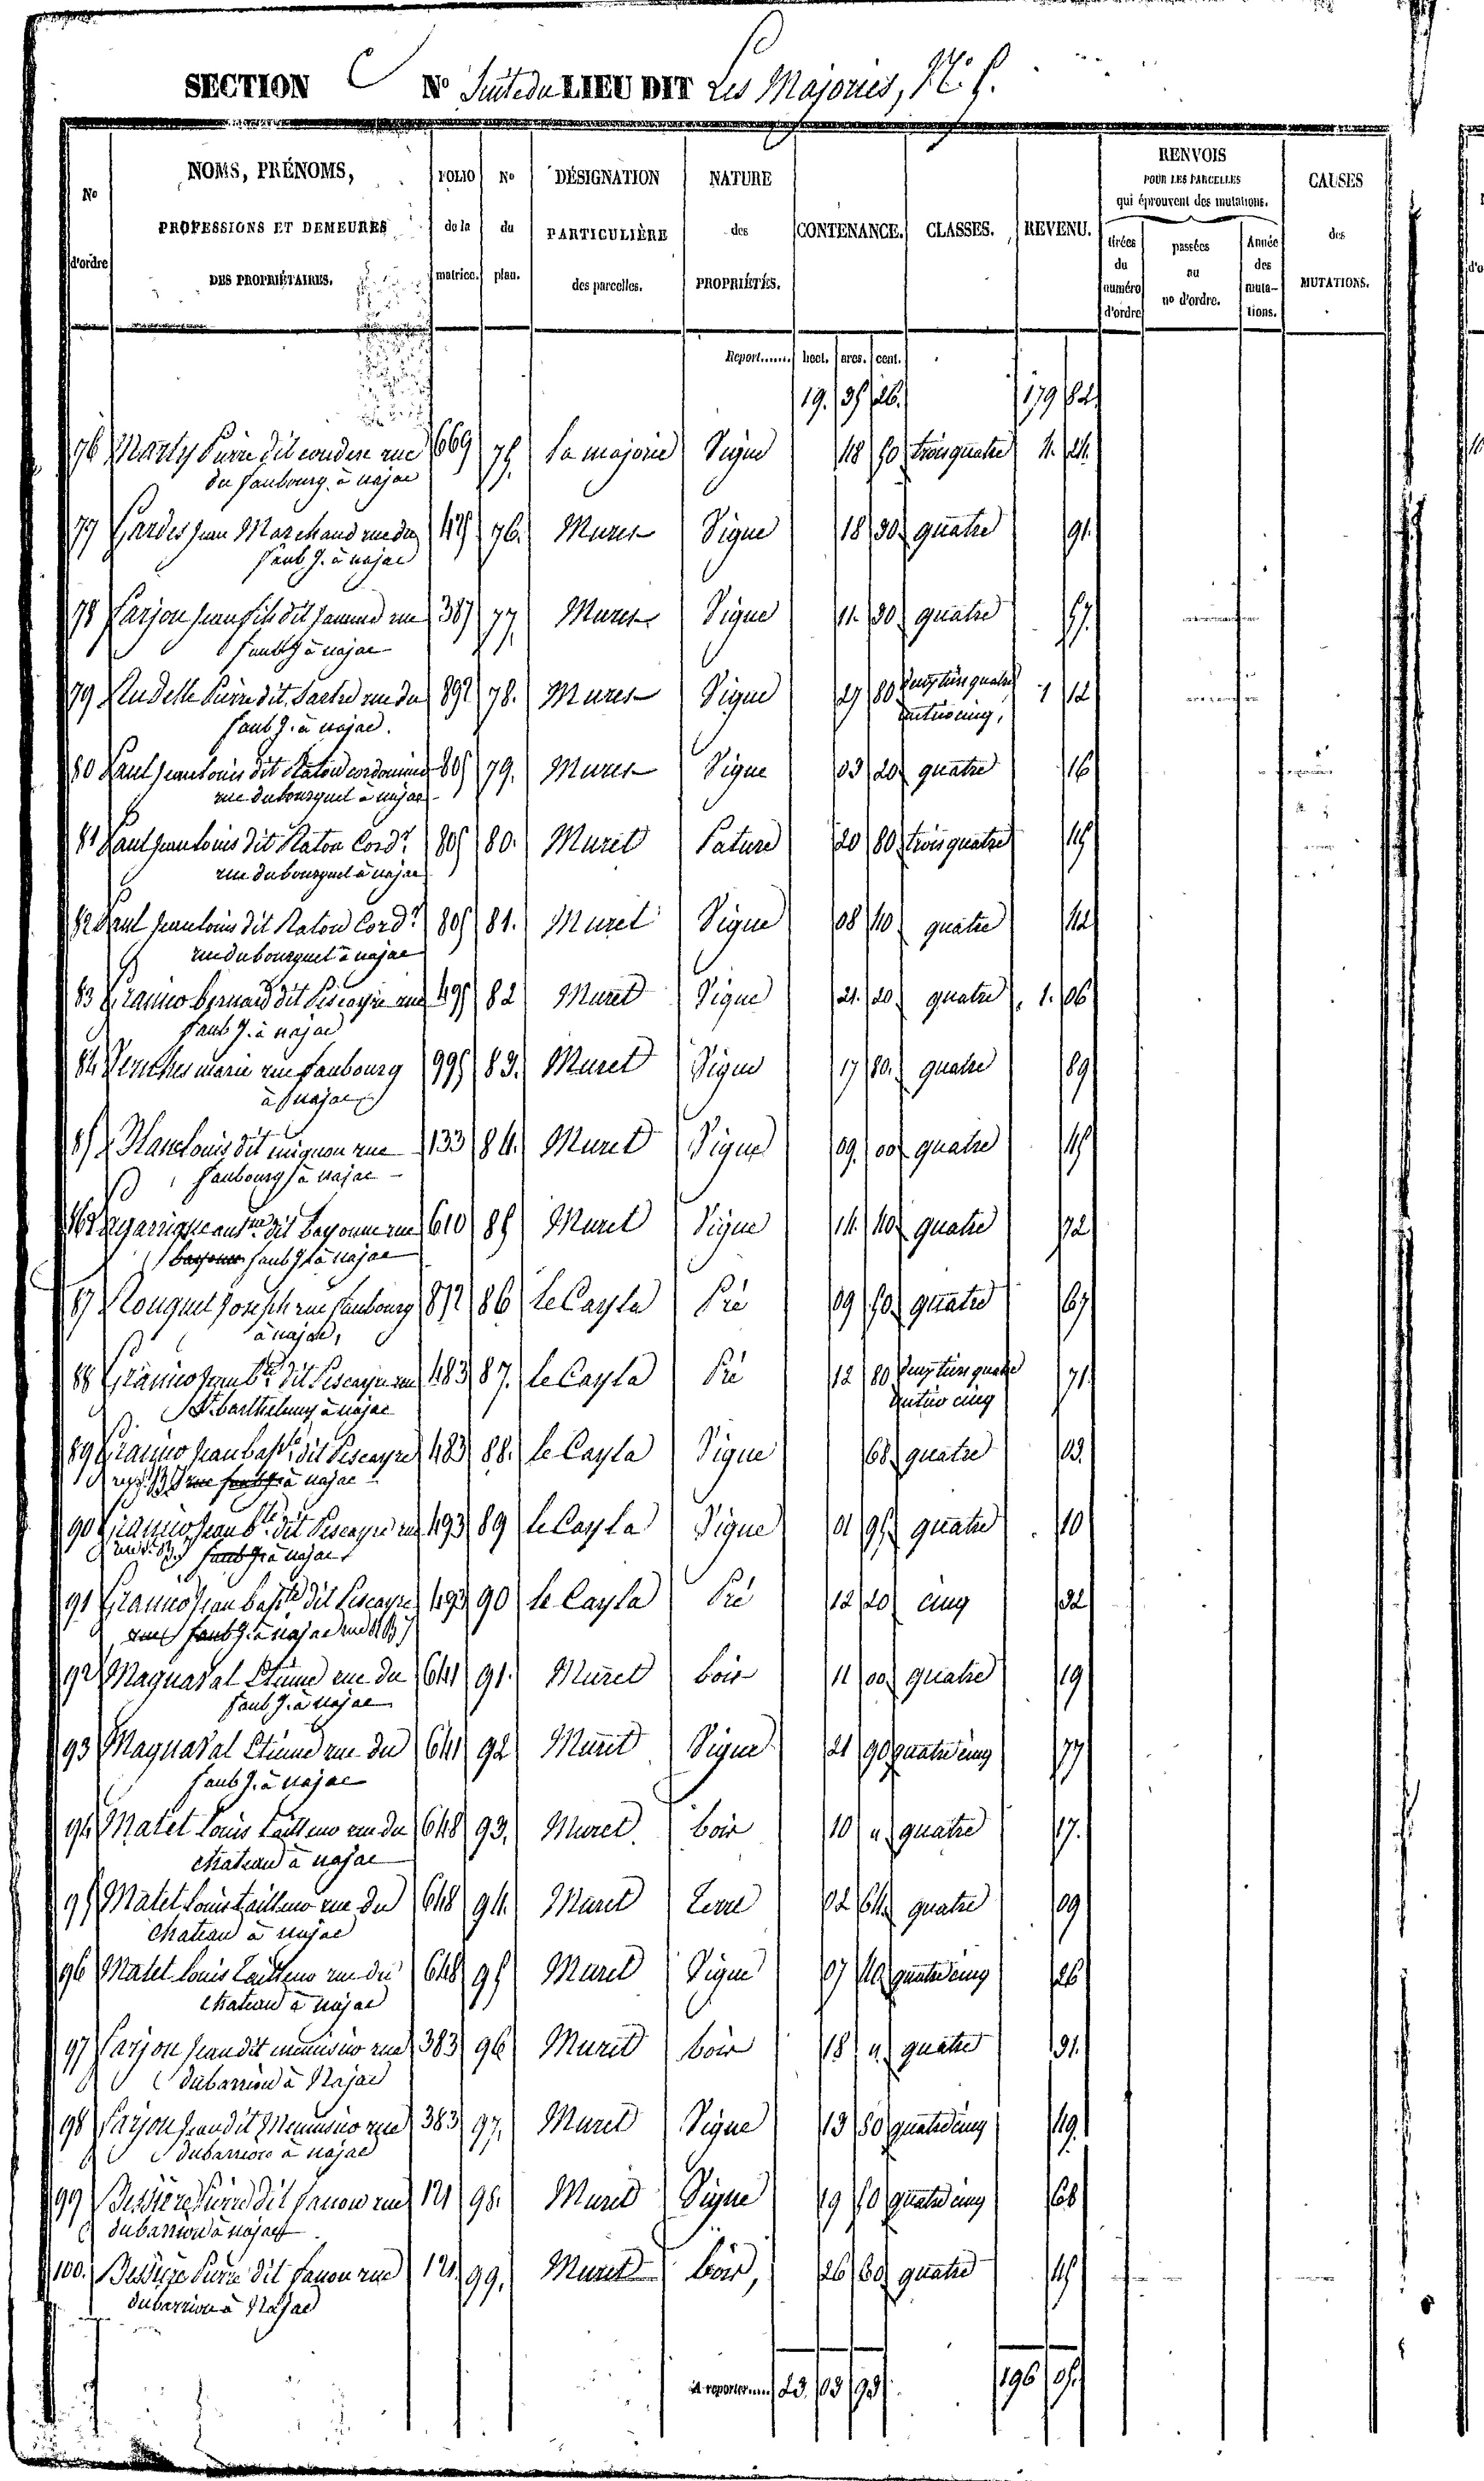 SECTION C No Suite du LIEU DIT Les Majories, N.o 5.
No d'ordre
NOMS, PRÉNOMS, PROFESSIONS ET DEMEURES DES PROPRIÉTAIRES.
FOLIO de la matrice.
No du plan.
DÉSIGNATION PARTICULIÈRE des parcelles.
NATURE des PROPRIÉTÉS.
CONTENANCE.
CLASSES.
REVENU.
RENVOIS POUR LES PARCELLES qui éprouvent des mutations.
tirées du numéro d'ordre
passées au no d'ordre.
Année des mutations.
CAUSES des MUTATIONS.
Report....... hect. ares. cent.
19. 35 26. 179 82
76 Marty Pierre dit coudere rue 669 75. La majorie Vigne 48 50 trois quatre 4. 24.
du faubourg à najac
77 Gardes Jean Marchand rue du 425 76. Mures Vigne 18 30 quatre 91.
faub g. à najac
78 Farjou Jean fils dit rue 387 77. Mures Vigne 11. 30 quatre 57.
faub g à najac
79 Andelle Pierre dit Sartre rue du 892 78. Mures Vigne 27 80 deux tiers quatre 1 12
faub g. à najac. un tiers cinq,
80 Paul Jean Louis dit Raton cordonnier 805 79. Mures Vigne 03 20 quatre 16
rue du bourguet à najac
81 Paul Jean Louis dit Raton Cord.r 805 80. Muret Pature 20 80 trois quatre 15
rue du bourguet à najac
82 Paul Jean Louis dit Raton Cord.r 805 81. Muret Vigne 08 40 quatre 42
rue du bourguet à najac
83 Granier bernard dit Pescayre rue 495 82 Muret Vigne 21. 20 quatre 1. 06
faub g. à najac
84 marie rue faubourg 995 83. Muret Vigne 17 80. quatre 89
à najac
85 Blanc Louis dit mignon rue 133 84. Muret Vigne 09. 00 quatre 45
faubourg à najac
86 Lagarrigue dit bayonne rue 610 85 Muret Vigne 14. 40 quatre 72
bayonne faub g à najac
87 Rouquet Joseph rue faubourg 872 86 le Cayla Pré 09 50 quatre 67
à najac,
88 Granier Jean b.te dit Pescayre rue 483 87. le Cayla Pré 12 80 deux tiers quatre 71.
St. barthelemy à najac un tiers cinq
89 Granier Jean bap.te dit Pescayre 483 88. le Cayla Vigne 68 quatre 03.
rue faub g. à najac
90 Granier Jean b.te dit Pescayre rue 493 89 le Cayla Vigne 01 95 quatre 10
faub g à najac
91 Granier Jean bap.te dit Pescayre 493 90 le Cayla Pré 12 20 cinq 32
rue faub g. à najac rue St B
92 Magnaval Etienne rue du 641 91. Muret bois 11 00 quatre 19
faub g. à najac
93 Magnaval Etienne rue du 641 92 Muret Vigne 21 90 quatre cinq 77
faub g. à najac
94 Matet Louis tailleur rue du 648 93. Muret bois 10 " quatre 17.
chateau à najac
95 Matet Louis tailleur rue du 648 94. Muret Terre 02 64 quatre 09
chateau à najac
96 Matet Louis Tailleur rue du 648 95 Muret Vigne 07 40 quatre cinq 26
chateau à najac
97 Farjou Jean dit menusier rue 383 96 Muret bois 18 " quatre 31.
du barriou à Najac
98 Farjou Jean dit Menusier rue 383 97. Muret Vigne 13 80 quatre cinq 49.
du barriou à najac
99 Bessière Pierre dit fanou rue 121 98. Muret Vigne 19 50 quatre cinq 68
du barriou à najac
100. Bessière Pierre dit fanou rue 121. 99. Muret bois, 26 60 quatre 45
du barriou à Najac
A reporter..... 23. 03 93 196 05.